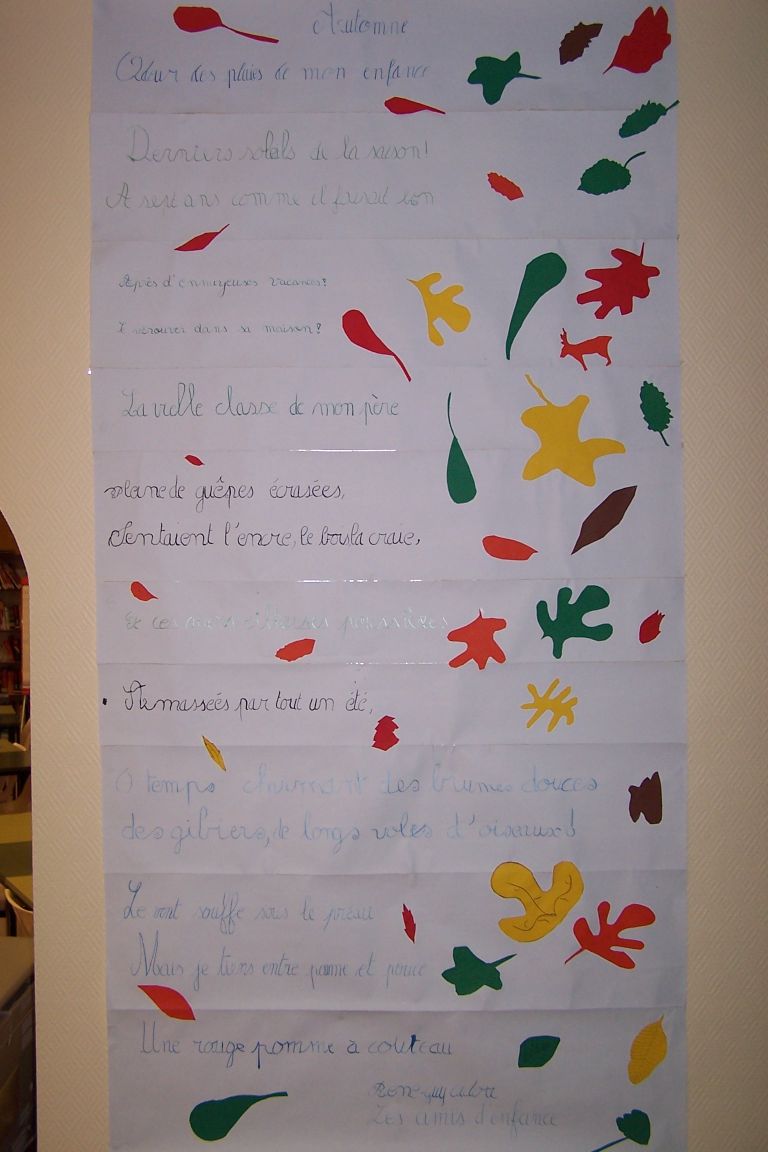 Automne
Odeur des pluies de mon enfance
Derniers soleils de la saison!
A sept ans comme il faisait bon
Après d'ennuyeuses vacances!
retrouver dans sa maison!
La vielle classe de mon père
pleine de guêpes écrasées,
Sentaient l'encre, le bois la craie,
Et ces
Amassées par tout un été,
O temps charmant des brumes douces
des gibiers, de longs voles d'oiseaux!
Le vent souffle sous le préau
Mais je tiens entre paume et pouce
Une rouge pomme à couteau
René guy cadou
Les amis d'enfance